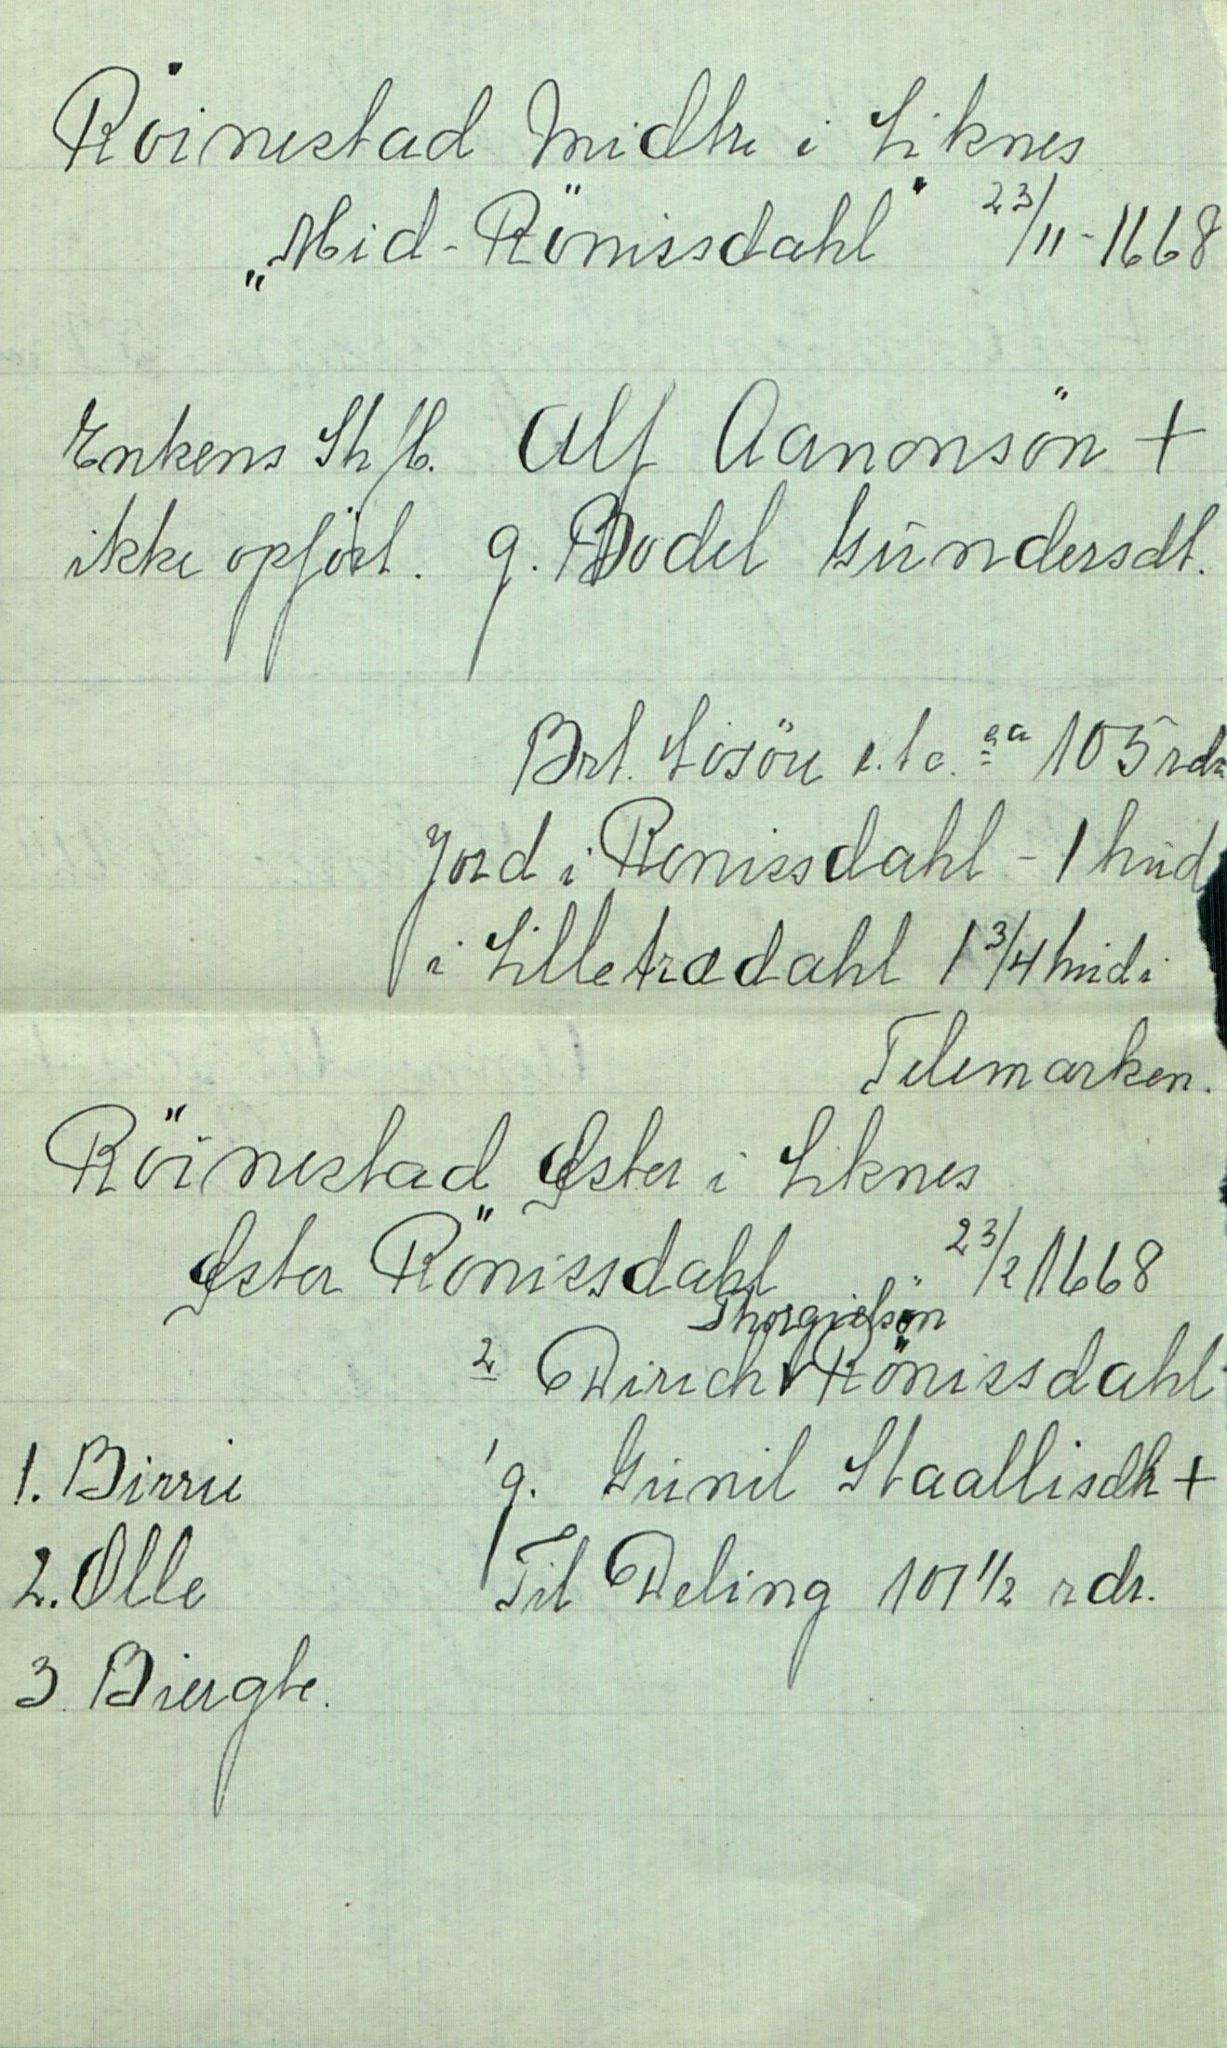 Röinestad Midtre i Liknes
„Mid-Rönissdahl" 23/11-1668
Enkens Alf Aanonsön +
ikke opfört. g. Bodel Gundersdt.
Brt. Lösöre e.t.c. ca 105 rdr
Jord i Rönissdahl - 1 hud
i Lilletrædahl 1 3/4 hud i
Telemarken.
Röinestad Øster i Liknes
Øster Rönissdahl 23/2 1668
Thorgielsön
2 Dirich Rönissdahl
1. Birrie 1 g. Gunil Staallisdtr +
2. Olle Til Deling 101 1/2 rdr.
3. Biergte.